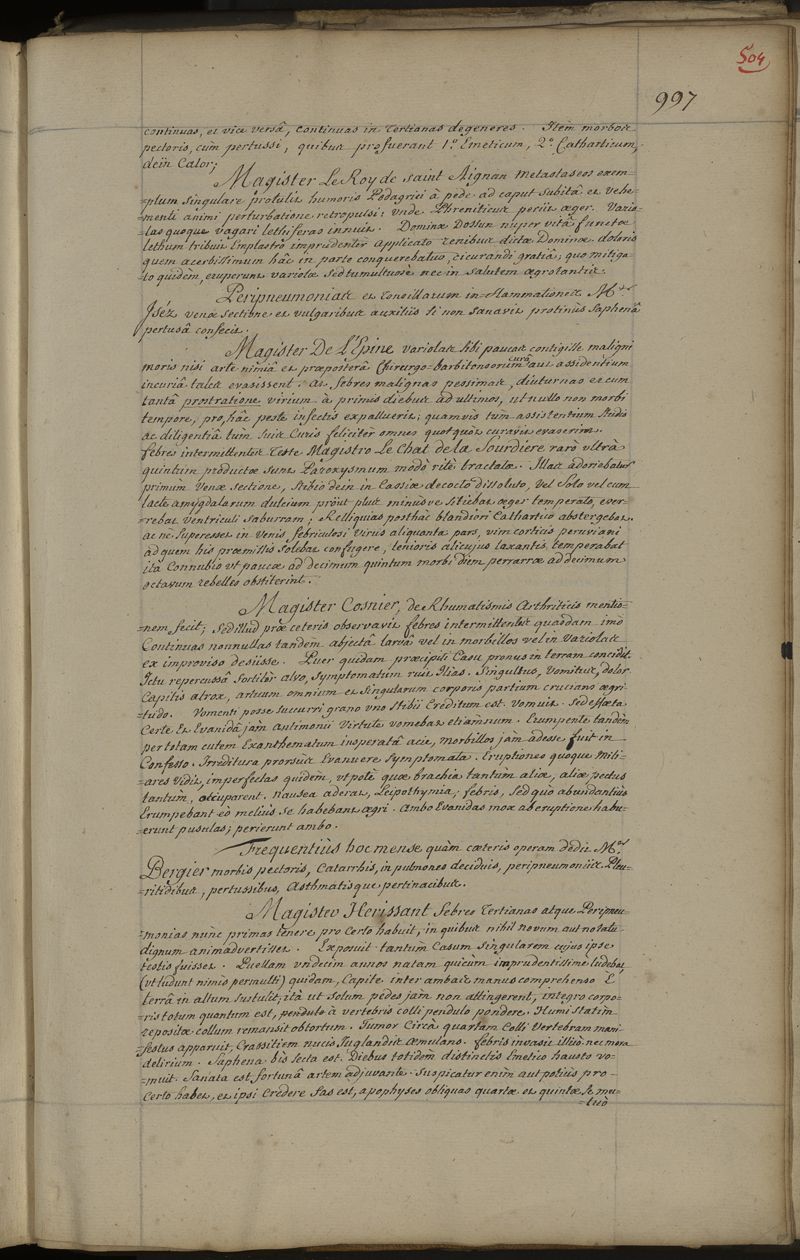 504
997
continuas, et vice versâ, continuas in tertianas degeneres. Item morbos
pectoris, cum pertussi, quibus profuerant 1.º Emeticum, 2.º Catharticum,
dein Calor;
Magister Le Roy de saint Aignan metastaseos exem-
-plum singulare protulit humoris Podagrici à pede ad caput subitâ et vehe-
-menti animi perturbatione retropulsi: unde Phreniticus periit æger. Vario-
-las quoque vagari lethiferas innuit. Dominæ Dossun nuper vitâ functæ
lethum tribuit Emplastro imprudenter applicato renibus dictæ Dominæ doloris
quem acerbissimum hâc in parte conquerebatur, cicurandi gratiâ, quo mitiga-
-to quidem, eruperunt variolæ sed tumultuosè nec in salutem ægrotantis.
Peripneumonias et tonsillarum inflammationes M.
Iséz venæ sectione et vulgaribus auxiliis si non sanavit protinus saphenâ
pertusâ confecit.
Magister De L'Epine variolas sibi paucas contigisse maligni
moris nisi arte nimiâ et præposterâ Chirurgo-barbitonsorum curâ aut assidentium
incuriâ tales evasissent. At febres malignas pessimas, diuturnas et cum
tantâ prostratione virium à primis diebus ad ultimos, ut nullo non morbi
tempore, pro, hâc peste infectis expalluerit; quamvis tum assistentium studio
ac diligentiâ tum suis curis feliciter omnes quotquot curavit evaserint.
febres intermittentes teste Magistro Le Chat de la Sourdiere rarò ultrà
quintum productæ sunt Paroxysmum modò ritè tractatæ. Illas adoriebatur
primùm Venæ sectione, stibio dein in Cassiæ decocto dissoluto, vel solo vel cum
lacte amygdalarum dulcium prout plus minusve sitiebat æger temperato, ever-
-rebat ventriculi saburram; Relliquias posthac blandiori Cathartico abstergebat.
ac ne superesset in venis febriculosi virus aliquanta pars, vim corticis peruviani
ad quem his præmissis solebat confugere, lenioris alicujus laxantis temperabat
ita Connubio ut paucæ ad decimum quintum morbi diem perrarræ ad decimum
octavum rebelles obstiterint.
Magister Cosnier, de Rhumatismis Arthriticis mentio-
-nem fecit; Sed illud præ ceteris observavit febres intermittentes quasdam imò
Continuas nonnullas tandem abjectâ larvâ vel in morbillos vel in Variolas
ex improviso desiisse. Puer quidam præcipiti Casu pronus in terram concidit
Ictu repercussâ fortiter alvo, symptomatum ruit Ilias. Singultus, Vomitus, dolor
Capitis atrox, artuum omnium et singularum corporis partium cruciatio ægri-
-tudo. Vomenti posse succurri grano uno stibii Creditum est. Vomuit. Sed effæta
Certe Et Evanidâ jàm antimonii Virtute vomebat etiamnum. Erumpente tandem
per totam cutem Exanthematum insperatâ acie, morbillos jàm adesse fuit in
Confesso. Irreditura prorsus Evanuere Symptomata. Eruptiones quoque Mili-
-ares Vidit, imperfectas quidem, utpotè quæ brachia tantùm aliæ, aliæ pectus
tantum, occuparent. Nausea aderat, Leipothymia; febris, sed quò abundantius
Erumpebant eò melius se habebant ægri. Ambo Evanidas mox ab eruptione habu-
-erunt pusulas; perierunt ambo.
Frequentius hoc mense quàm cæteris operam dedit M.
Bergier morbis pectoris, Catarrhis, in pulmones deciduis, peripneumoniis Pleu-
-ritidibus, pertussibus, Asthmatisque pertinacibus.
Magister Herissant febres tertianas atque Peripneu-
-monias nunc primas tenere pro Certo habuit, in quibus nihil novum aut notatu
dignum animadvertisset. Exposuit tantum Casum singularem cujus ipse
testis fuisset. Puellam undecim annos natam quicùm imprudentissime ludebat
(ut ludunt nimis permulti) quidam, Capite inter ambas manus comprehenso E
terrâ in altum sustulit, ità ut solum pedes jàm non attingerent, integro corpo-
-ris totum quantum est, pendulo à vertebris colli pendulo pondere. Humi statim
repositæ collum remansit obtortum. Tumor Circà quartam Colli Vertebram mani-
-festus apparuit, Crassitiem nucis Juglandis æmulans. febris invasit illicò nec mora
delirium. Saphena bis secta est. Diebus totidem distinctis Emetico hausto vo-
-muit. Sanata est fortunâ artem adjuvante. Suspicatur enim aut potius pro-
Certo habet, et ipsi Credere fas est, apophyses obliquas quartæ et quintæ se mu-
-tuò